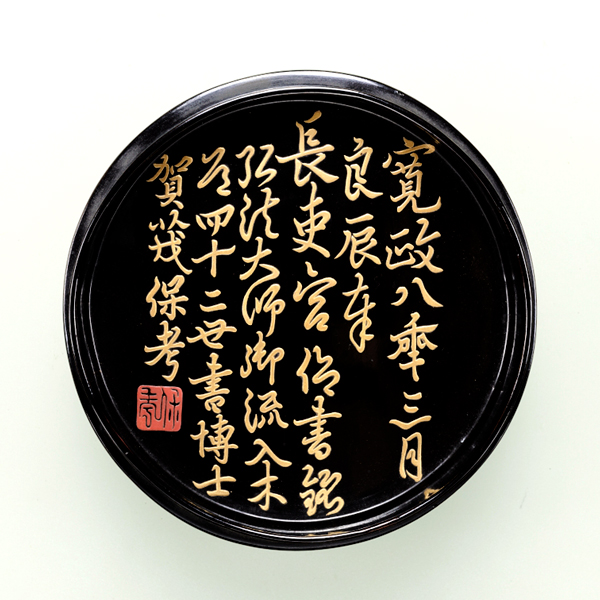 寛政八年三月
良辰奉
長吏宮命書銘
弘法大師御流入木
道四十二世書博士
賀茂保考